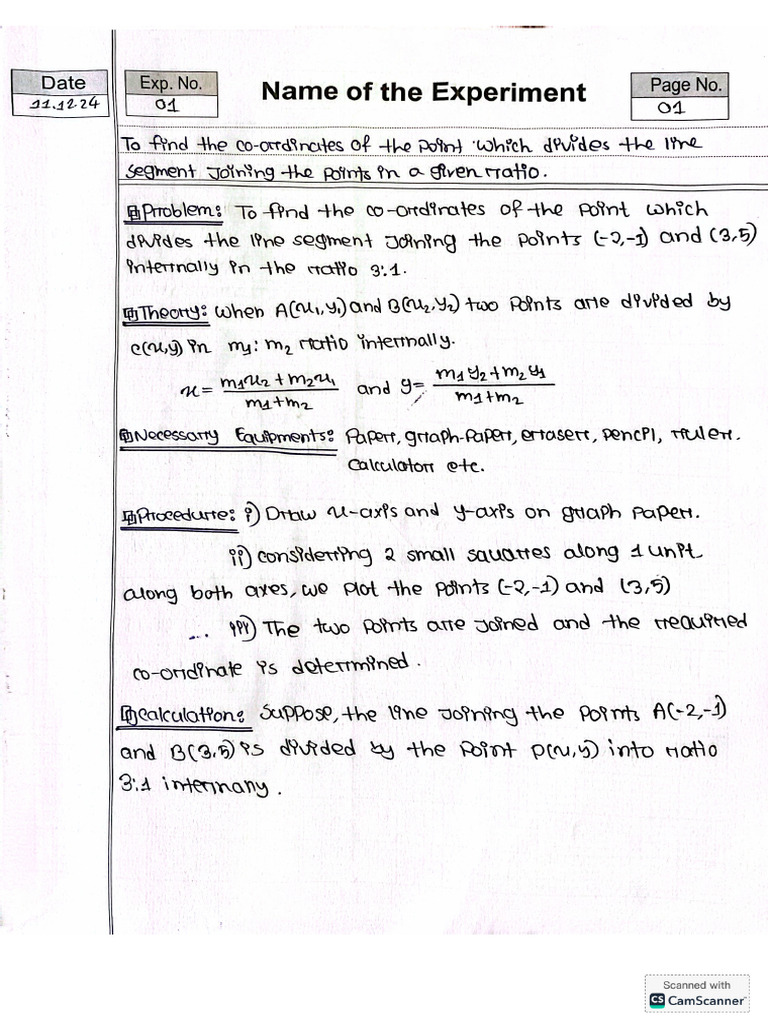 Date
11.12.24
Exp. No.
01
Name of the Experiment
Page No.
01
To find the co-ordinates of the point which divides the line
segment joining the points in a given ratio.
Problem: To find the co-ordinates of the point which
divides the line segment joining the points (-2,-1) and (3,5)
internally in the ratio 3:1.
Theory: When A(x₁,y₁) and B(x₂,y₂) two points are divided by
c(x,y) in m₁:m₂ ratio internally.
x = (m₁x₂+m₂x₁)/(m₁+m₂) and y = (m₁y₂+m₂y₁)/(m₁+m₂)
Necessary Equipments: Paper, graph-paper, eraser, pencil, ruler.
calculator etc.
Procedure: i) Draw x-axis and y-axis on graph paper.
ii) considering 2 small squares along 1 unit
along both axes, we plot the points (-2,-1) and (3,5)
iii) The two points are joined and the required
co-ordinate is determined.
Calculation: Suppose, the line joining the points A(-2,-1)
and B(3,5) is divided by the point P(x,y) into ratio
3:1 internally.
Scanned with
CS CamScanner